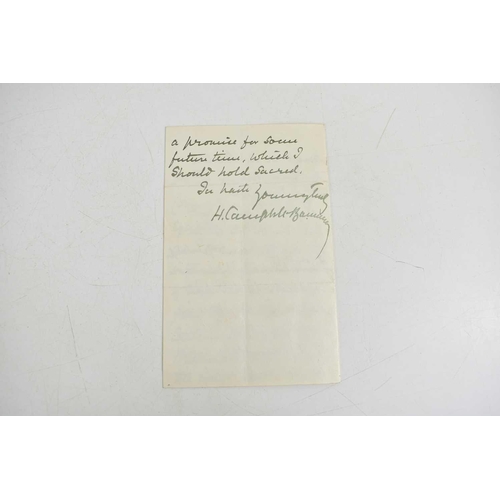 a promise for some
future time, which I
should hold sacred.
In haste Yours very truly
H. Campbell-Bannerman